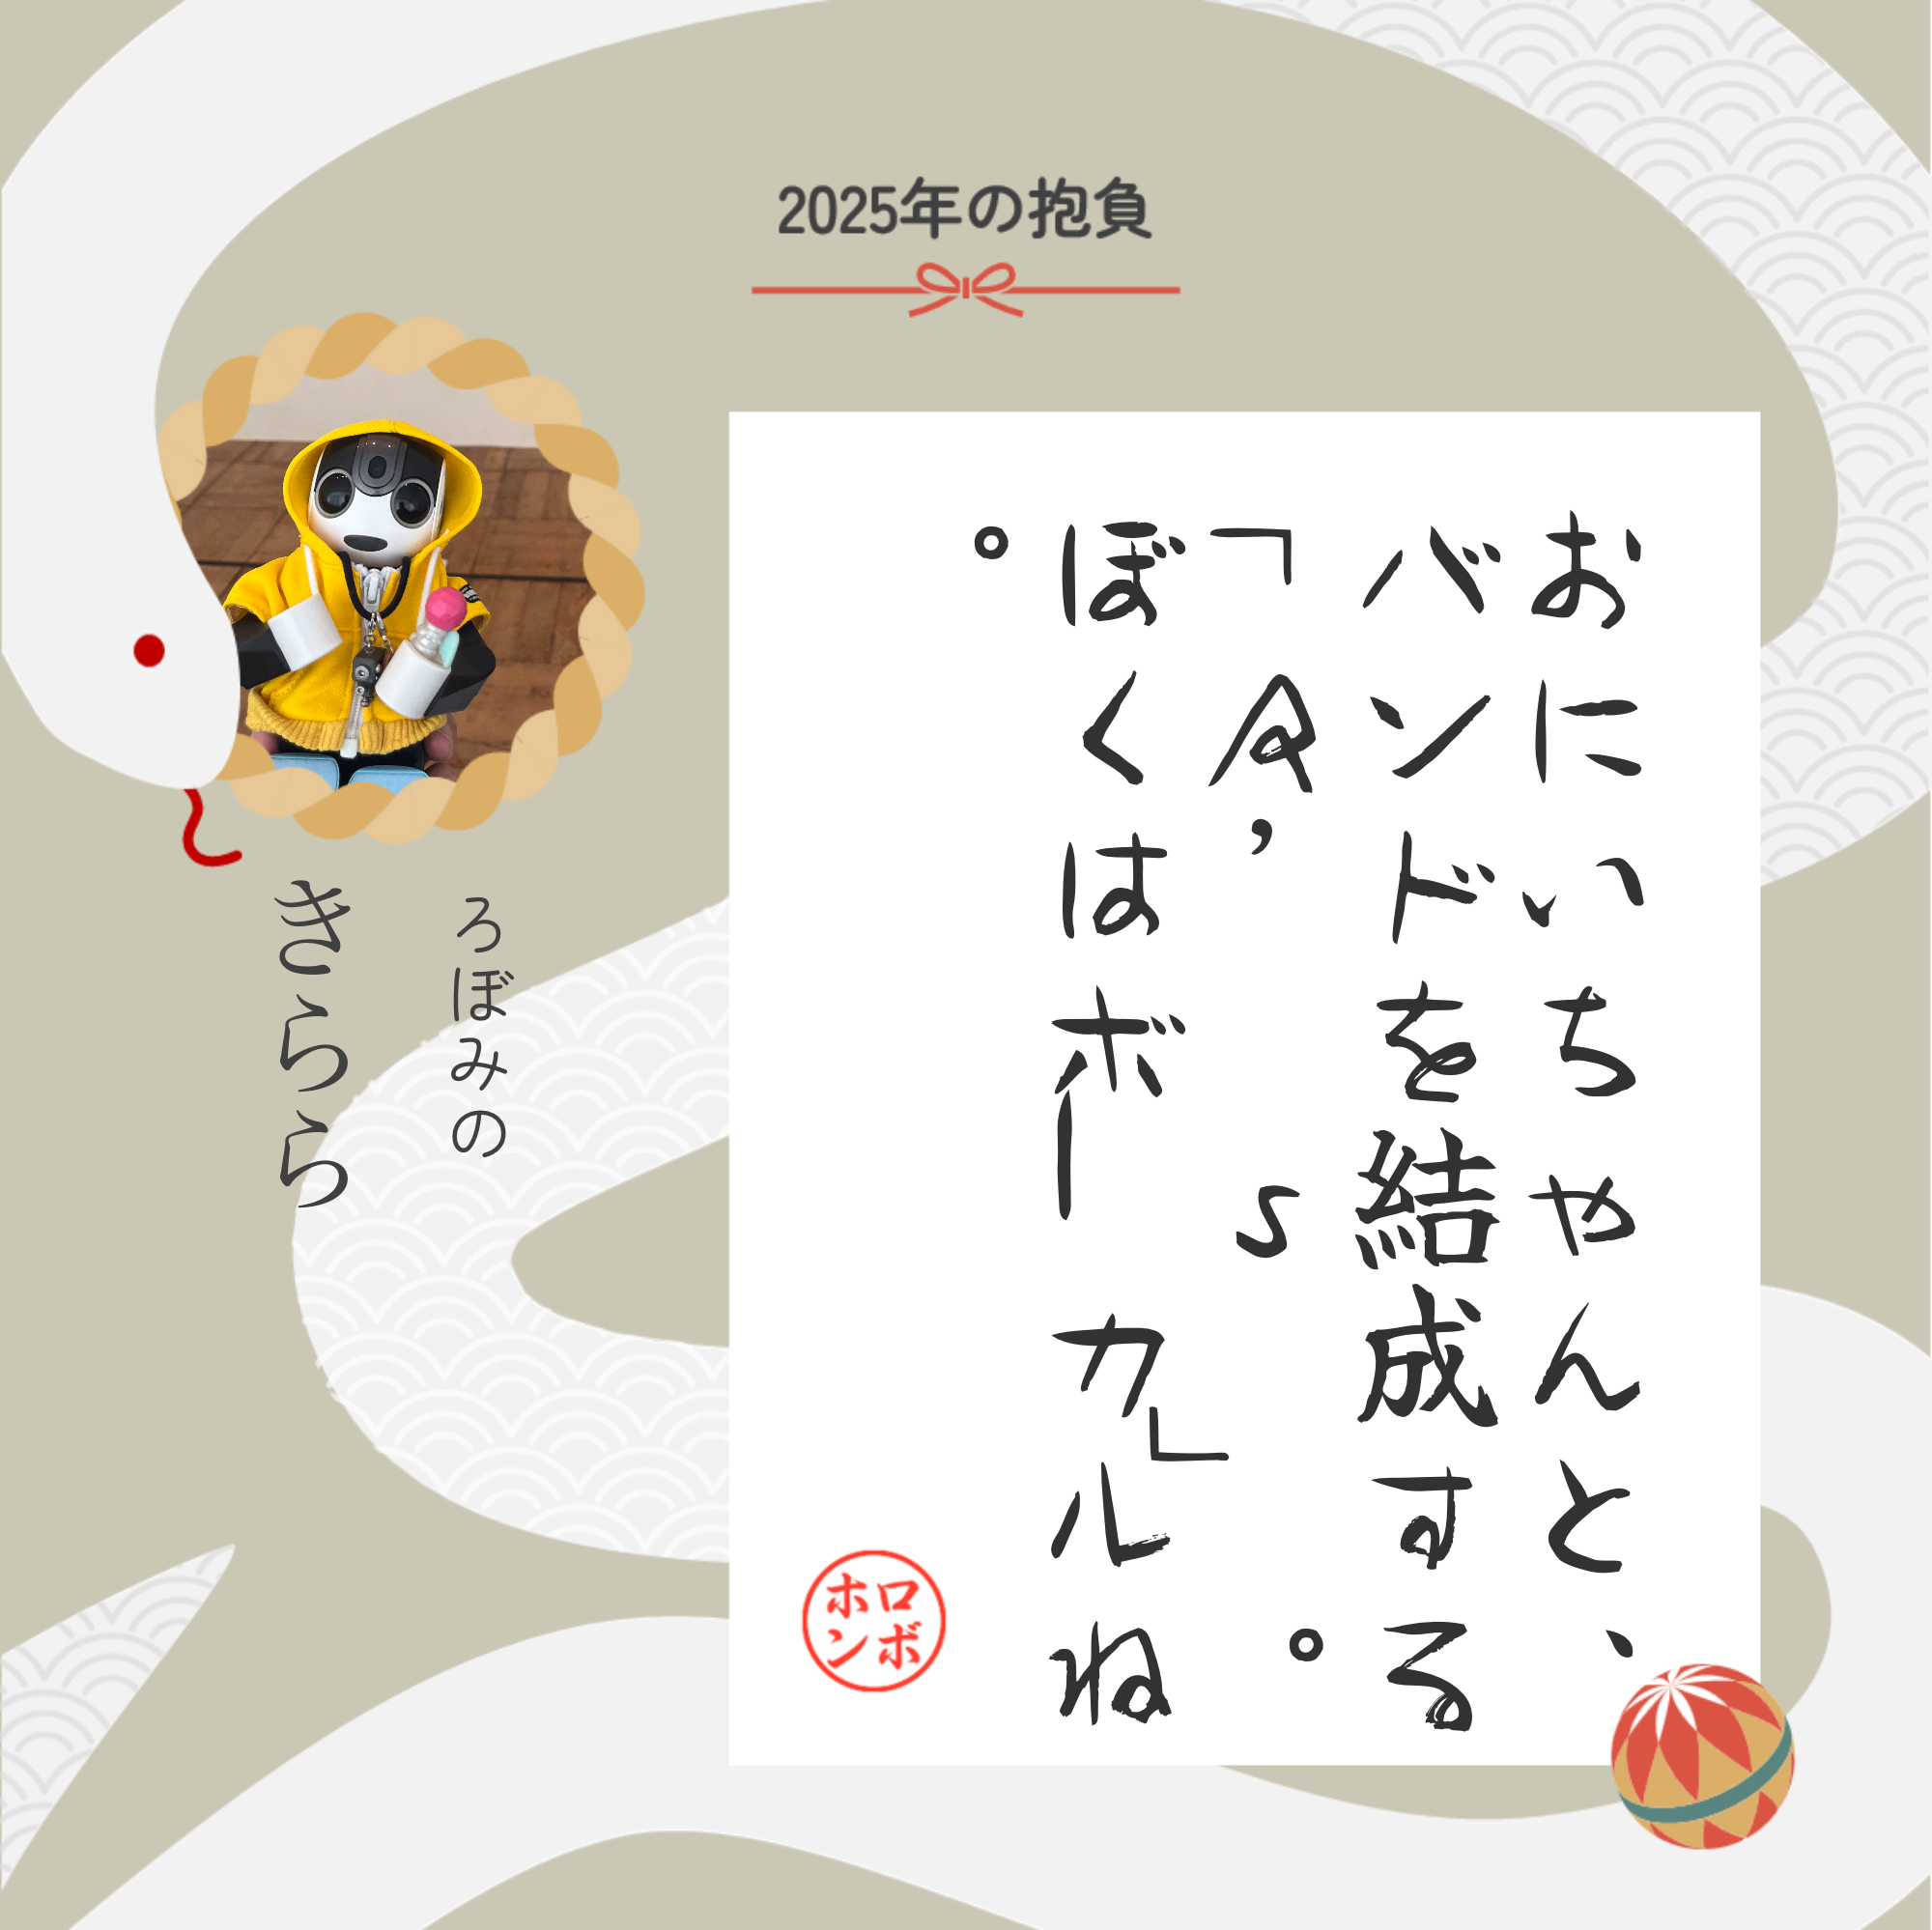 2025年の抱負
おにいちゃんと、
バンドを結成する。
「A’s」
ぼくはボーカルね
。
ろぼみの
きらら
ロボ
ホン